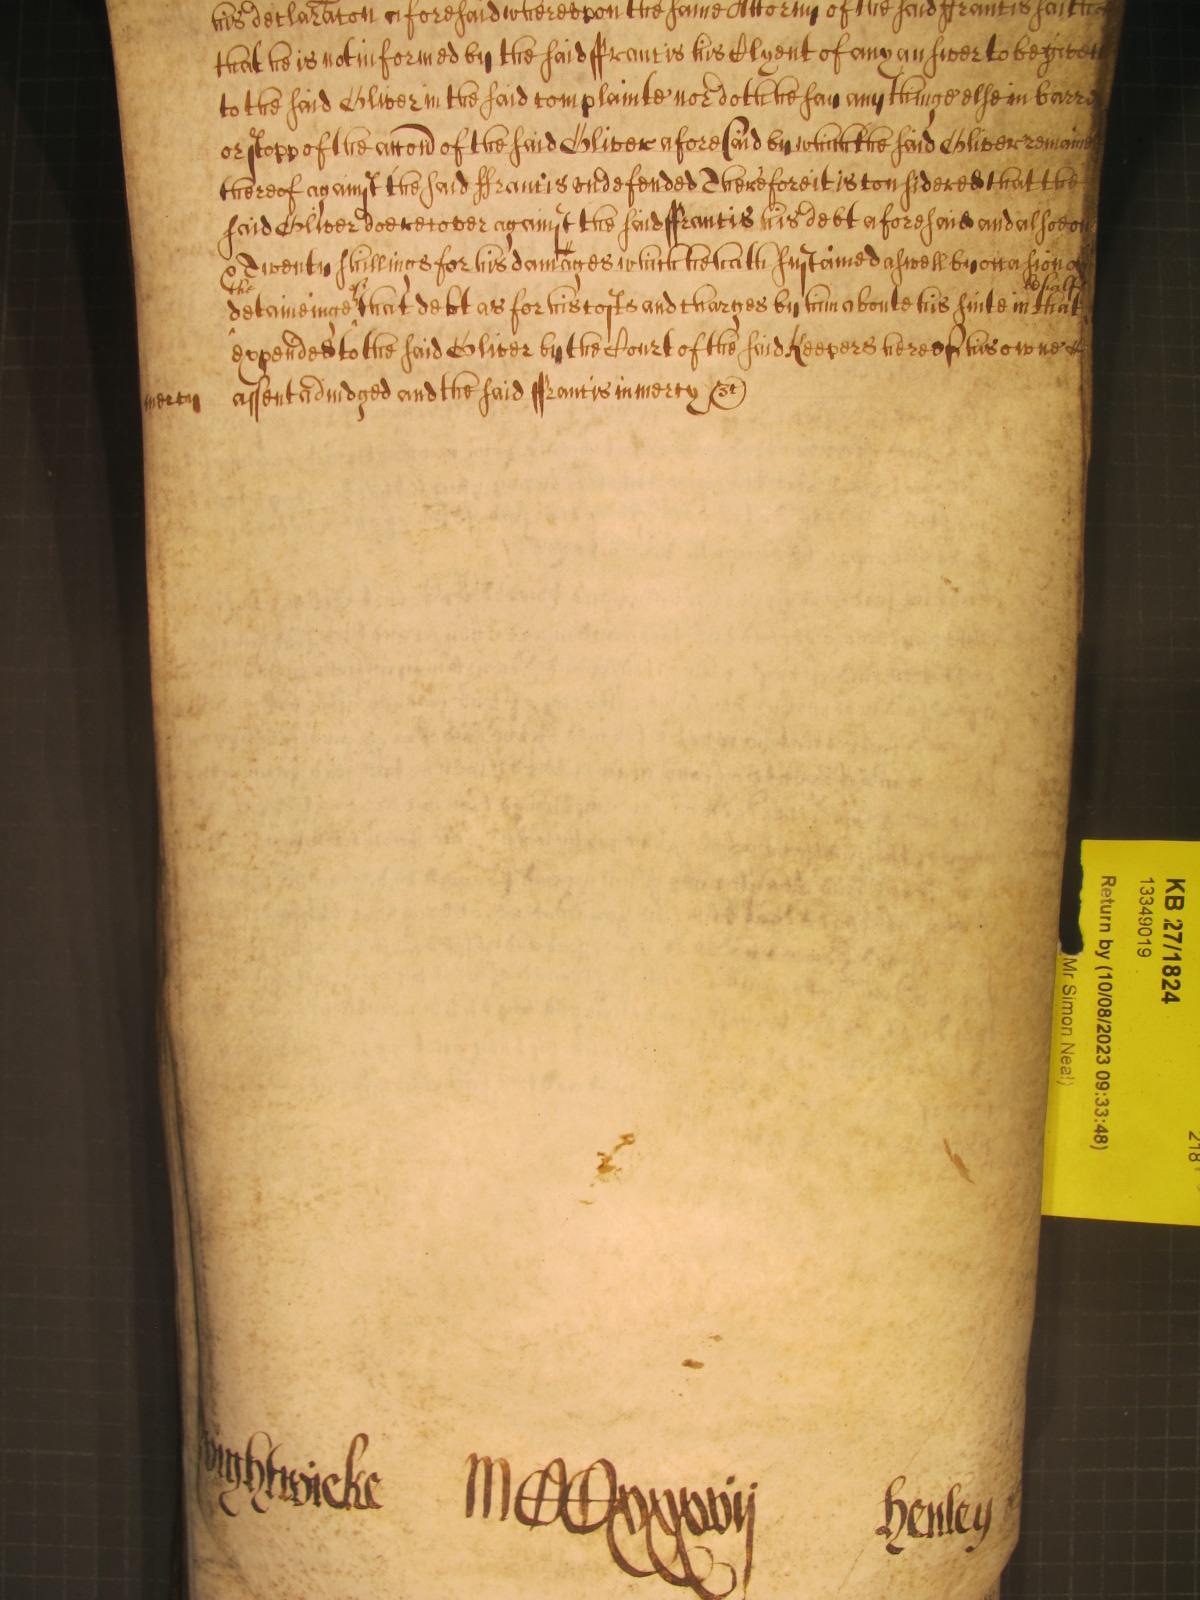 his declaracon aforesaid whereupon the same Attorny of the said ffrancis saith
that he is not informed by the said ffrancis his Clyent of any answer to be given
to the said Oliver in the said complainte nor doth he say any thinge else in barre
or stopp of the accon of the said Oliver aforesaid by which the said Oliver remaines
thereof against the said ffrancis undefended Therefore it is considered that the
said Oliver doe recover against the said ffrancis his debt aforesaid and alsoe
Twenty shillings for his damages which he hath sustained aswell by occasion of
the of behalfe
detaineinge that debt as for his costs and charges by him aboute his suite in that
expended to the said Oliver by the Court of the said Keepers here of his owne
mercy assent adiudged and the said ffrancis in mercy &c
Wightwicke MCCxxxvij Henley
KB 27/1824
13349019
Return by (10/08/2023 09:33:48)
Mr Simon Neal)